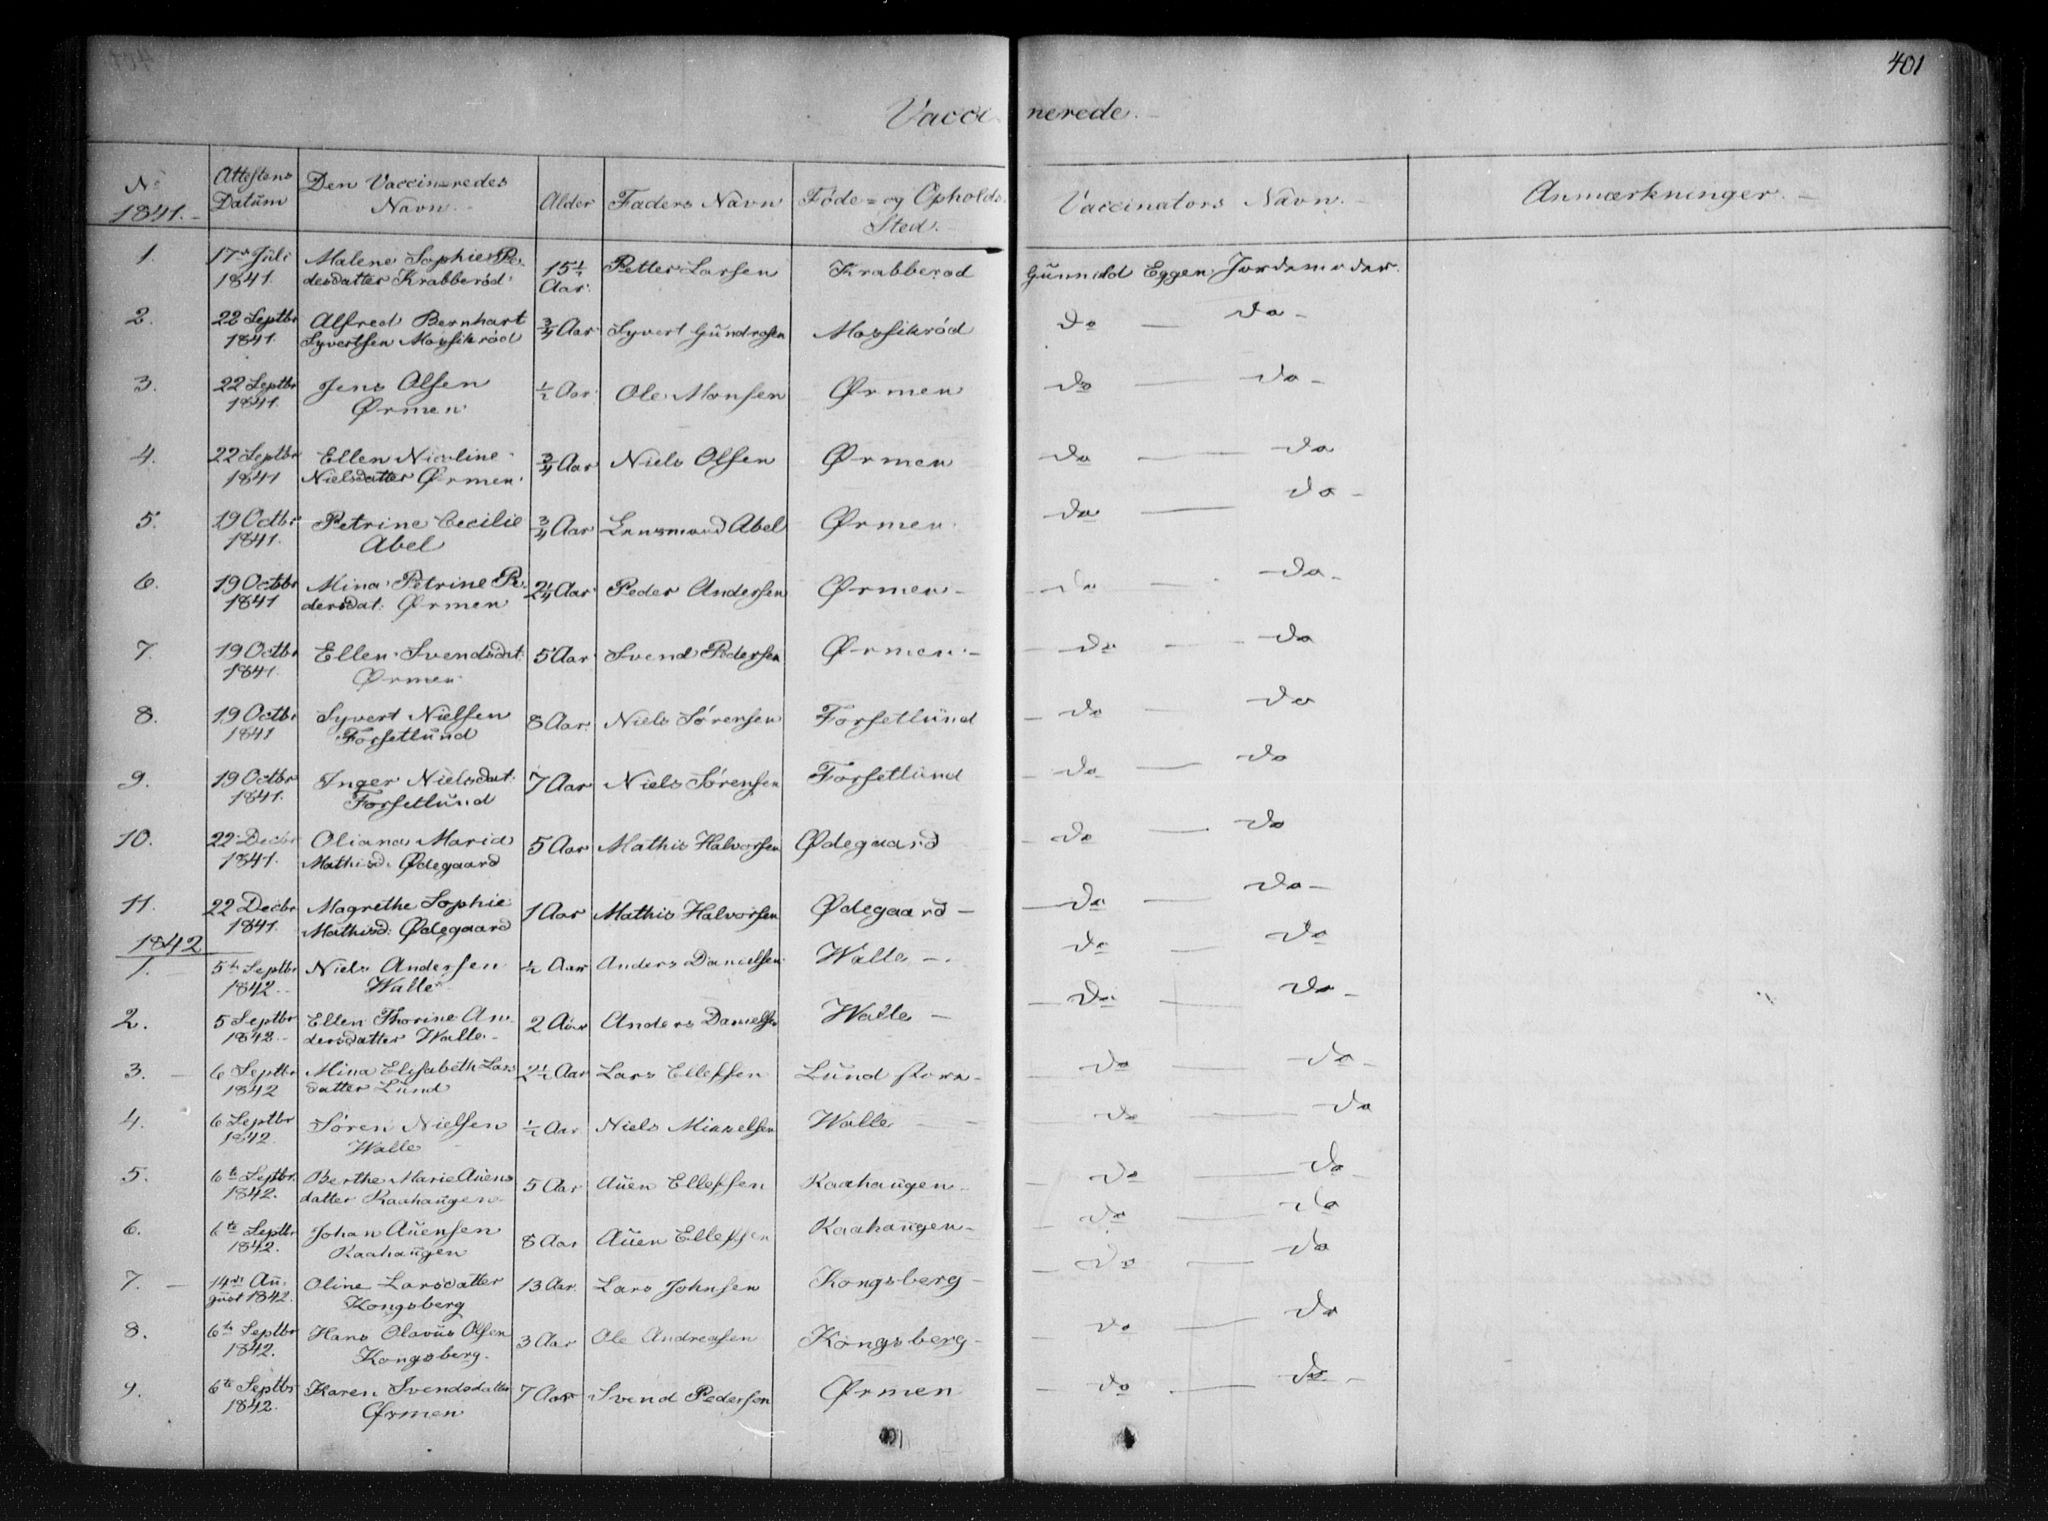 401
Vaccinerede.
No 1841. Attestens Datum Den Vaccineredes Navn. Alder Faders Navn Føde- og Opholds Sted. Vaccinators Navn. Anmærkninger.
1. 17de Juli Malene Sophie Pe- 15½ Petter Larsen Krabberød Gunnild Eggen Jordemoder.
1841. dersdatter Krabberød. Aar.
2. 22 Septbr Alfred Bernhart ¾ Aar Syvert Gundrosen Mossikrød do — do
1841. Syvertsen Mossikrød
3. 22 Septbr Jens Olsen ½ Aar Ole Monsen Ørmen do — do
1841. Ørmen
4. 22 Septbr Ellen Nicoline ¾ Aar Niels Olsen Ørmen do — do
1841 Nielsdatter Ørmen.
5. 19 Octbr Petrine Cecilie ¾ Aar Lensmand Abel Ørmen. do — do
1841. Abel
6. 19 Octbr Mina Petrine Pe- 2¼ Aar Peder Andersen Ørmen do — do
1841 dersdat: Ørmen
7. 19 Octbr Ellen Svendsdat: 5 Aar Svend Pedersen Ørmen do — do
1841. Ørmen
8. 19 Octbr Syvert Nielsen 8 Aar. Niels Sørensen Forsetlund do — do
1841 Forsetlund
9. 19 Octbr Inger Nielsdat: 7 Aar Niels Sørensen Forsetlund do — do
1841. Forsetlund
10. 22 Decbr Oliana Maria 5 Aar Mathis Halvorsen Ødegaard do — do
1841. Mathisd: Ødegaard
11. 22 Decbr Magrethe Sophie 1 Aar Mathis Halvorsen Ødegaard do — do
1841. Mathisd: Ødegaard
1842
1. 5te Septbr Niels Andersen ½ Aar Anders Danielsen Walle do — do
1842. Walle
2. 5 Septbr Ellen Thorine An- 2 Aar Anders Danielsen Walle do — do
1842 dersdatter Walle
3. 6 Septbr Mina Elisabeth Lars 2½ Aar Lars Ellefsen Lund store do — do
1842 datter Lund
4. 6 Septbr Søren Nielsen ½ Aar Niels Mikkelsen Walle do — do
1842. Walle
5. 6te Septbr. Berthe Marie Auens 5 Aar Auen Ellefsen Kaahaugen do — do
1842. datter Kaahaugen
6. 6te Septbr Johan Auensen 8 Aar Auen Ellefsen Kaahaugen do — do
1842. Kaahaugen
7. 14de Au- Oline Larsdatter 13 Aar. Lars Johnsen Kongsberg do — do
gust 1842. Kongsberg
8. 6te Septbr Hans Olavus Olsen 3 Aar Ole Andreasen Kongsberg do — do
1842. Kongsberg.
9. 6te Septbr Karen Svendsdatter 7 Aar Svend Pedersen Ørmen do — do
1842. Ørmen